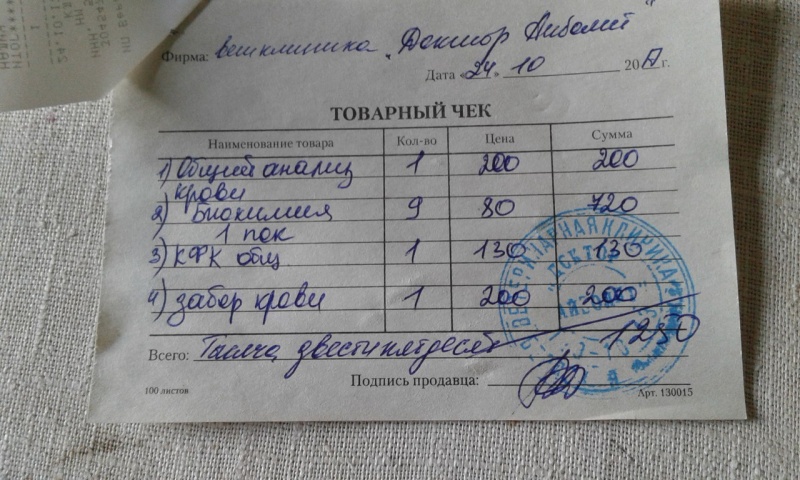 Фирма: ветклиника „Доктор Айболит"
Дата «24» 10 2017 г.
ТОВАРНЫЙ ЧЕК
Наименование товара Кол-во Цена Сумма
1) Общий анализ 1 200 200
крови
2) Биохимия 9 80 720
1 пок
3) КФК общ 1 130 130
4) забор крови 1 200 200
1250
Всего: Тысяча двести пятдесят
Подпись продавца:
100 листов Арт. 130015
ВЕТЕРИНАРНАЯ КЛИНИКА
"ДОКТОР
АЙБОЛИТ"